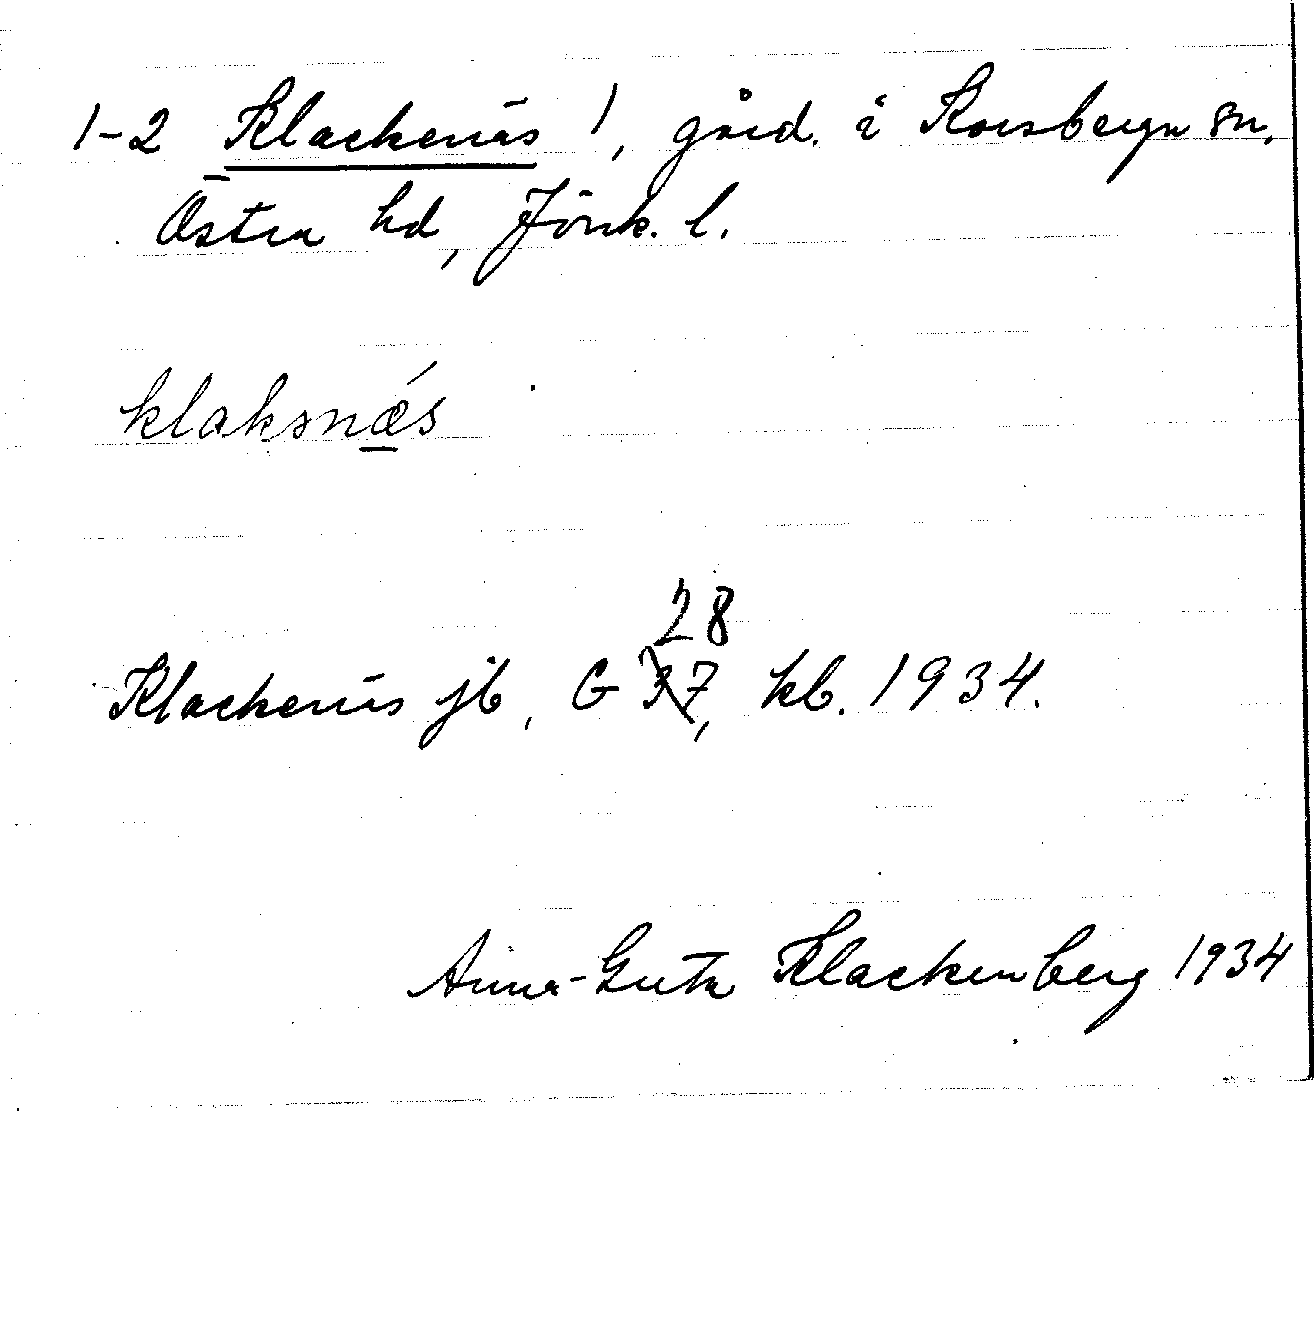 1-2 Klackenäs !, gård. i Korsberga sn.
Östra hd, Jönk. l.
klaksnǽs
28
Klackenäs jb, G 37, kb. 1934.
Anna-Greta Klackenberg 1934